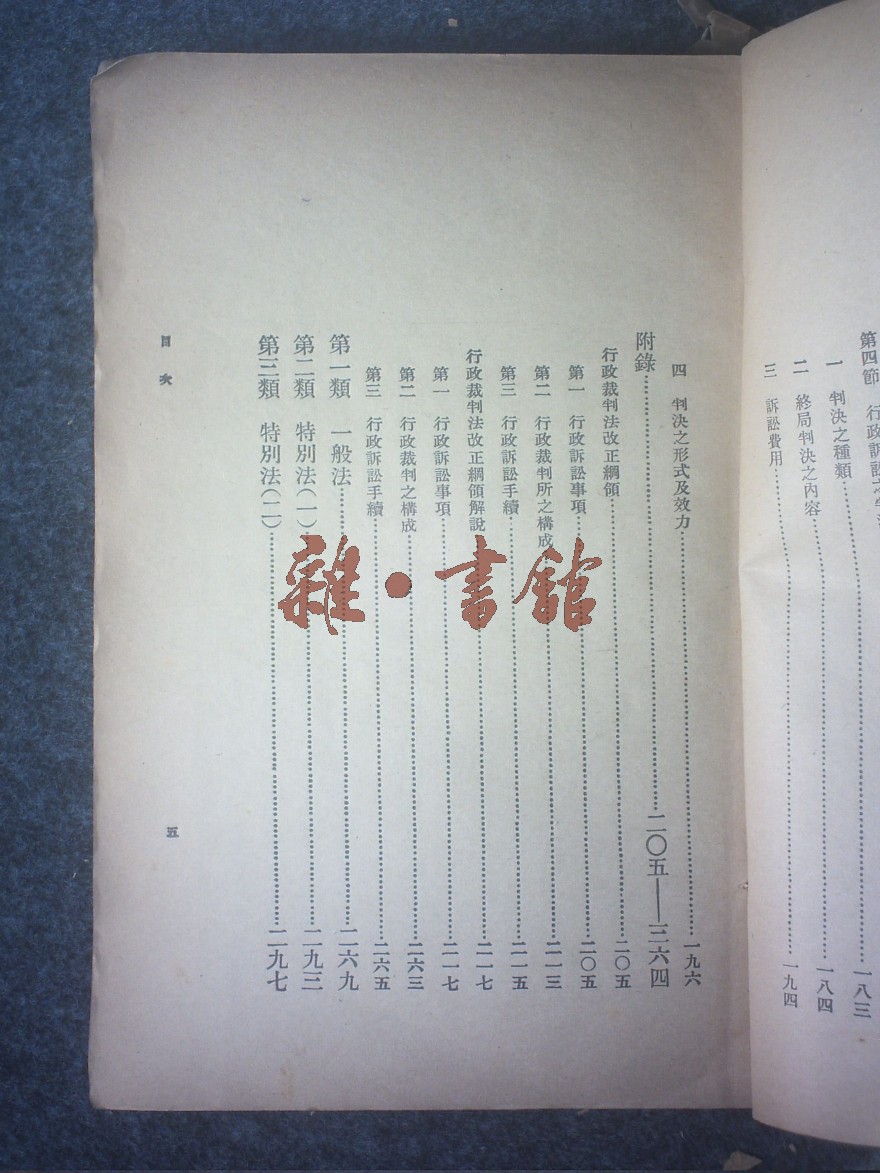 第四節 行政訴訟之
一 判決之種類……一八三
二 終局判決之內容……一八四
三 訴訟費用……一九四
四 判決之形式及效力……一九六
附錄……二〇五——三六四
行政裁判法改正綱領……二〇五
第一 行政訴訟事項……二〇五
第二 行政裁判所之構成……二一三
第三 行政訴訟手續……二一五
行政裁判法改正綱領解說……二一七
第一 行政訴訟事項……二一七
第二 行政裁判之構成……二六三
第三 行政訴訟手續……二六五
第一類 一般法……二六九
第二類 特別法(一)……二九三
第三類 特別法(二)……二九七
目次
五
雜·書館